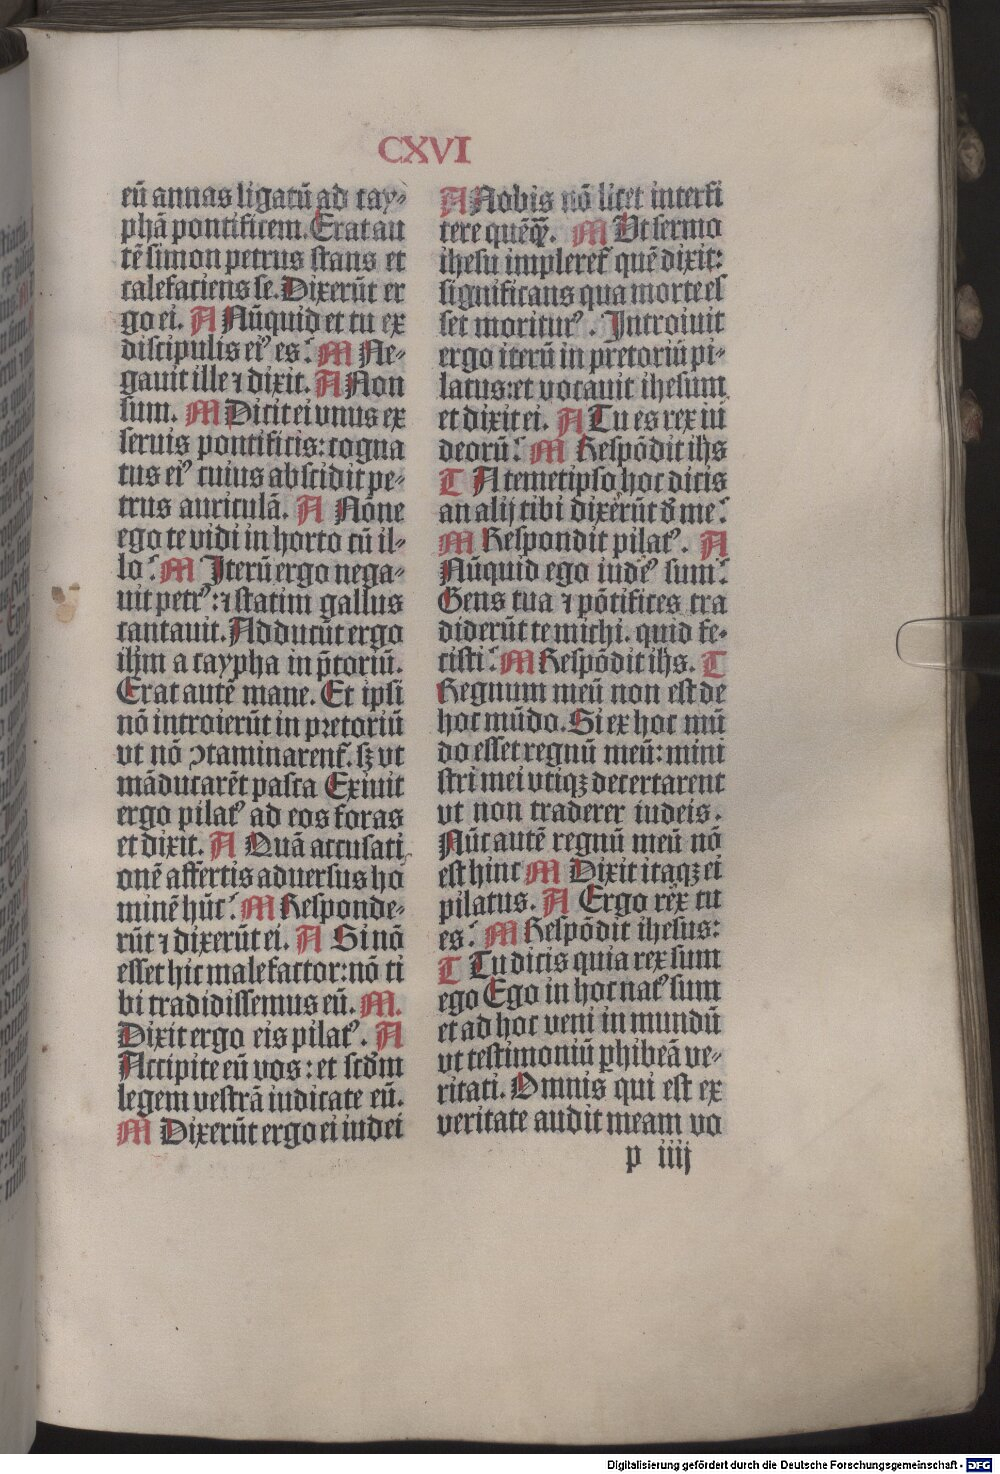 CXVI
eū annas ligatū ad cay⸗
phā pontificem. Erat au
tē simon petrus stans et
calefaciens se. Dixerūt er
go ei. A Nūquid et tu ex
discipulis eiꝰ es? M Ne⸗
gauit ille ⁊ dixit. A Non
sum. M Dicit ei vnus ex
seruis pontificis: cogna
tus eiꝰ cuius abscidit pe⸗
trus auriculā. A Nōne
ego te vidi in horto cū il⸗
lo? M Iterū ergo nega⸗
uit petrꝰ: ⁊ statim gallus
cantauit. Adducūt ergo
ihm a caypha in p̄toriū.
Erat autē mane. Et ipsi
nō introierūt in pretoriū
vt nō ꝯtaminarent᷑. sꝫ vt
māducarēt pasca Exiuit
ergo pilatꝰ ad eos foras
et dixit. A Quā accusati
onē affertis aduersus ho
minē hūc? M Responde⸗
rūt ⁊ dixerūt ei. A Si nō
esset hic malefactor: nō ti
bi tradidissemus eū. M.
Dixit ergo eis pilatꝰ. A
Accipite eū vos: et scđm
legem vestrā iudicate eū.
M Dixerūt ergo ei iudei
A Nobis nō licet interfi
cere quēq̄. M Vt sermo
ihesu impleret᷑ quē dixit:
significans qua morte es
set moriturꝰ. Introiuit
ergo iterū in pretoriū pi⸗
latus: et vocauit ihesum
et dixit ei. A Tu es rex iu
deorū? M Respōdit ihs
T A temetipso hoc dicis
an alij tibi dixerūt đ me?
M Respondit pilatꝰ. A
Nūquid ego iudeꝰ sum?
Gens tua ⁊ pōtifices tra
diderūt te michi. quid fe⸗
cisti? M Respōdit ihs. T
Regnum meū non est de
hoc mūdo. Si ex hoc mū
do esset regnū meū: mini
stri mei vtiqꝫ decertarent
vt non traderer iudeis.
Nūc autē regnū meū nō
est hinc M Dixit itaqꝫ ei
pilatus. A Ergo rex tu
es? M Respōdit ihesus:
T Tu dicis quia rex sum
ego Ego in hoc natꝰ sum
et ad hoc veni in mundū
vt testimoniū ꝑhibeā ve⸗
ritati. Omnis qui est ex
veritate audit meam vo
p iiij
Digitalisierung gefördert durch die Deutsche Forschungsgemeinschaft - DFG